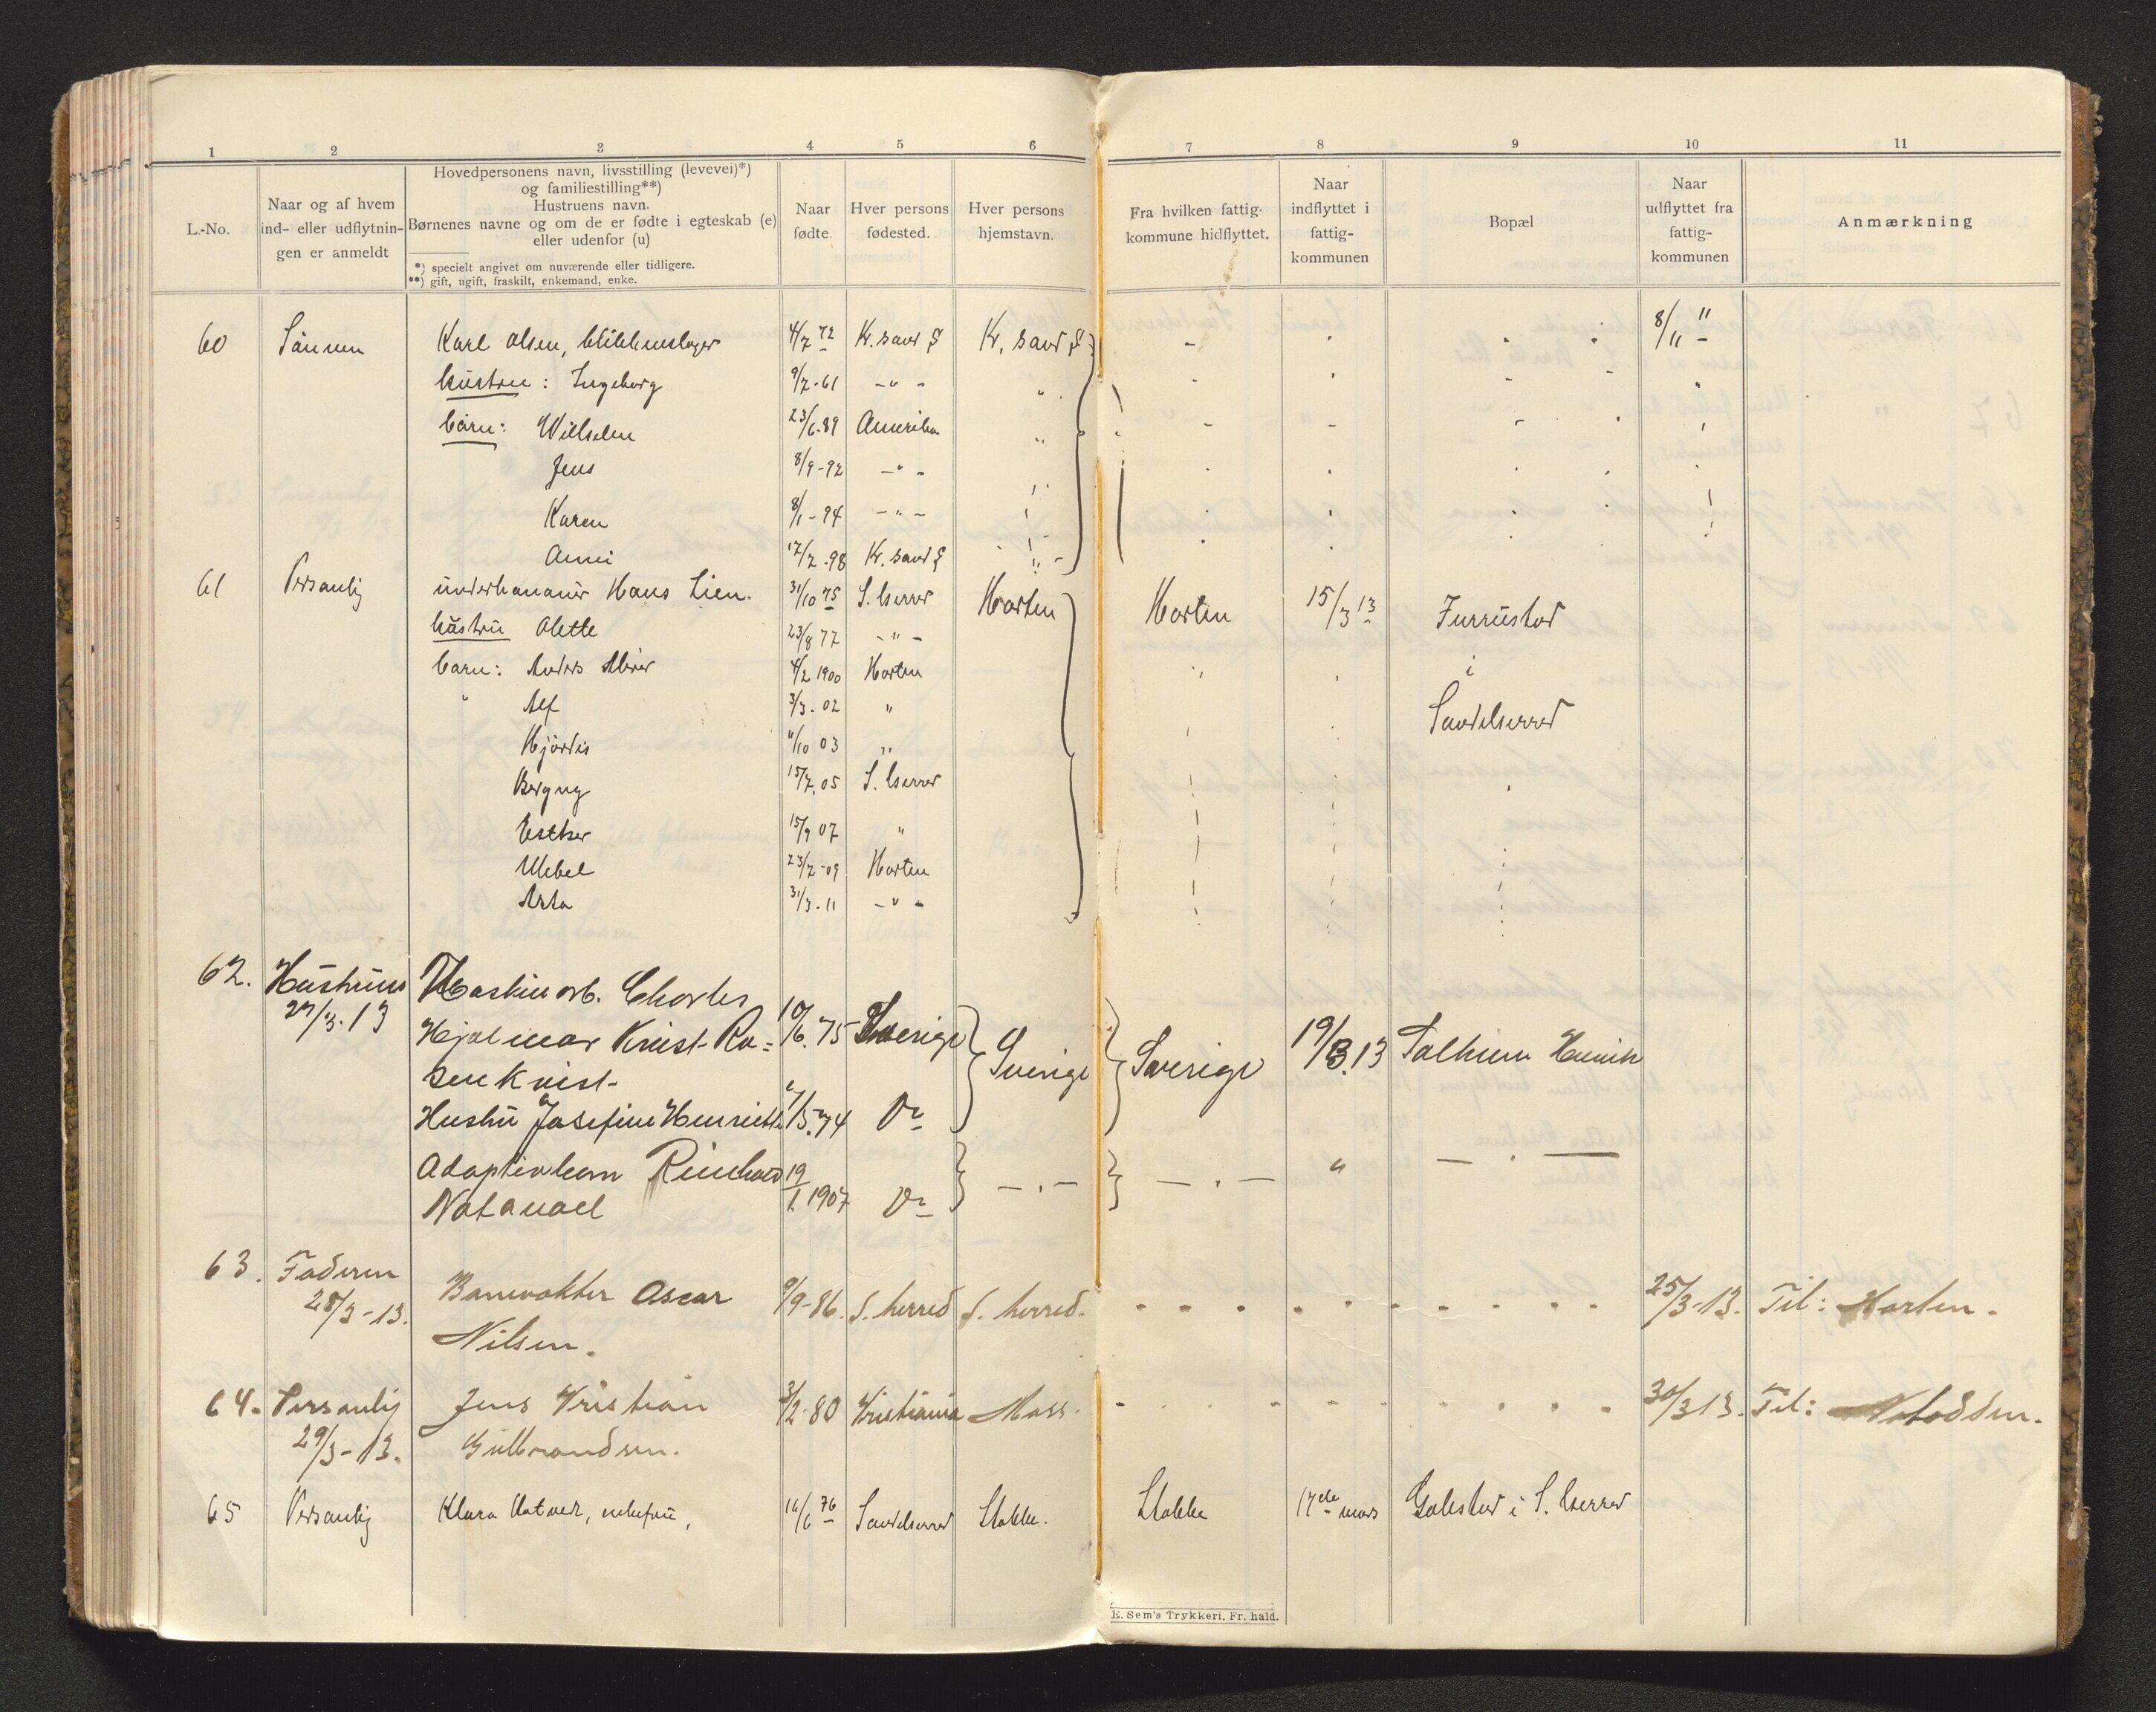 1 2 3 4 5 6 7 8 9 10 11
L.-No.
Naar og af hvem
ind- eller udflytnin-
gen er anmeldt
Hovedpersonens navn, livsstilling (levevei)*)
og familiestilling**)
Hustruens navn.
Børnenes navne og om de er fødte i egteskab (e)
eller udenfor (u)
*) specielt angivet om nuværende eller tidligere.
**) gift, ugift, fraskilt, enkemand, enke.
Naar
fødte.
Hver persons
fødested.
Hver persons
hjemstavn.
Fra hvilken fattig-
kommune hidflyttet.
Naar
indflyttet i
fattig-
kommunen
Bopæl
Naar
udflyttet fra
fattig-
kommunen
Anmærkning
60 Sønnen Karl Olsen, blikkenslager 4/7 72 Kr. sand S Kr. sand S - 8/11 "
hustru : Ingeborg 9/7-61 -"-
barn: Wilhelm 23/6-89 Amerika "
Jens 8/9-92 -"-
Karen 8/1-94 -"-
Anni 17/7-98 Kr. sand S "
61 Personlig underkanonér Hans Lien. 31/10 75 S. herred Horten Horten 15/3 13 Furustad
hustru Olette 23/8 77 -"-
barn: Anders 4/2 1900 Horten i
" Alf 3/3. 02 " Sandeherred
Hjørdis 11/10 03 "
Bergny 15/7. 05 S. herred
Esther 15/9 07 "
23/7-09 Horten
Asta 31/3-11 -"-
62. Hustruen Maskinarb. Charles
27/3.13 Hjalmar Kvist-Ro= 10/6.75 Sverige Sverige Sverige 19/3.13
senkvist-
Hustru Josefine Henriette /5.74 Do
Adoptivbarn 19 -"- -"- "
Natanael /1.1907 Do
63. Faderen Banevokter Oscar 9/9-86. S. herred S. herred. 25/3-13. Til: Horten.
28/3-13. Nilsen.
64. Personlig Jens Kristian 3/2-80 Kristiania Moss. 30/3 13. Til: Notodden.
29/3-13. Gulbrandsen.
65 Personlig Klara 16/6 76 Sandeherred Stokke. Stokke 17de mars i S. herred
E. Sem's Trykkeri, Fr. hald.